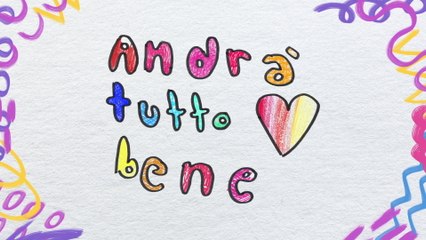 Andrà
tutto
bene